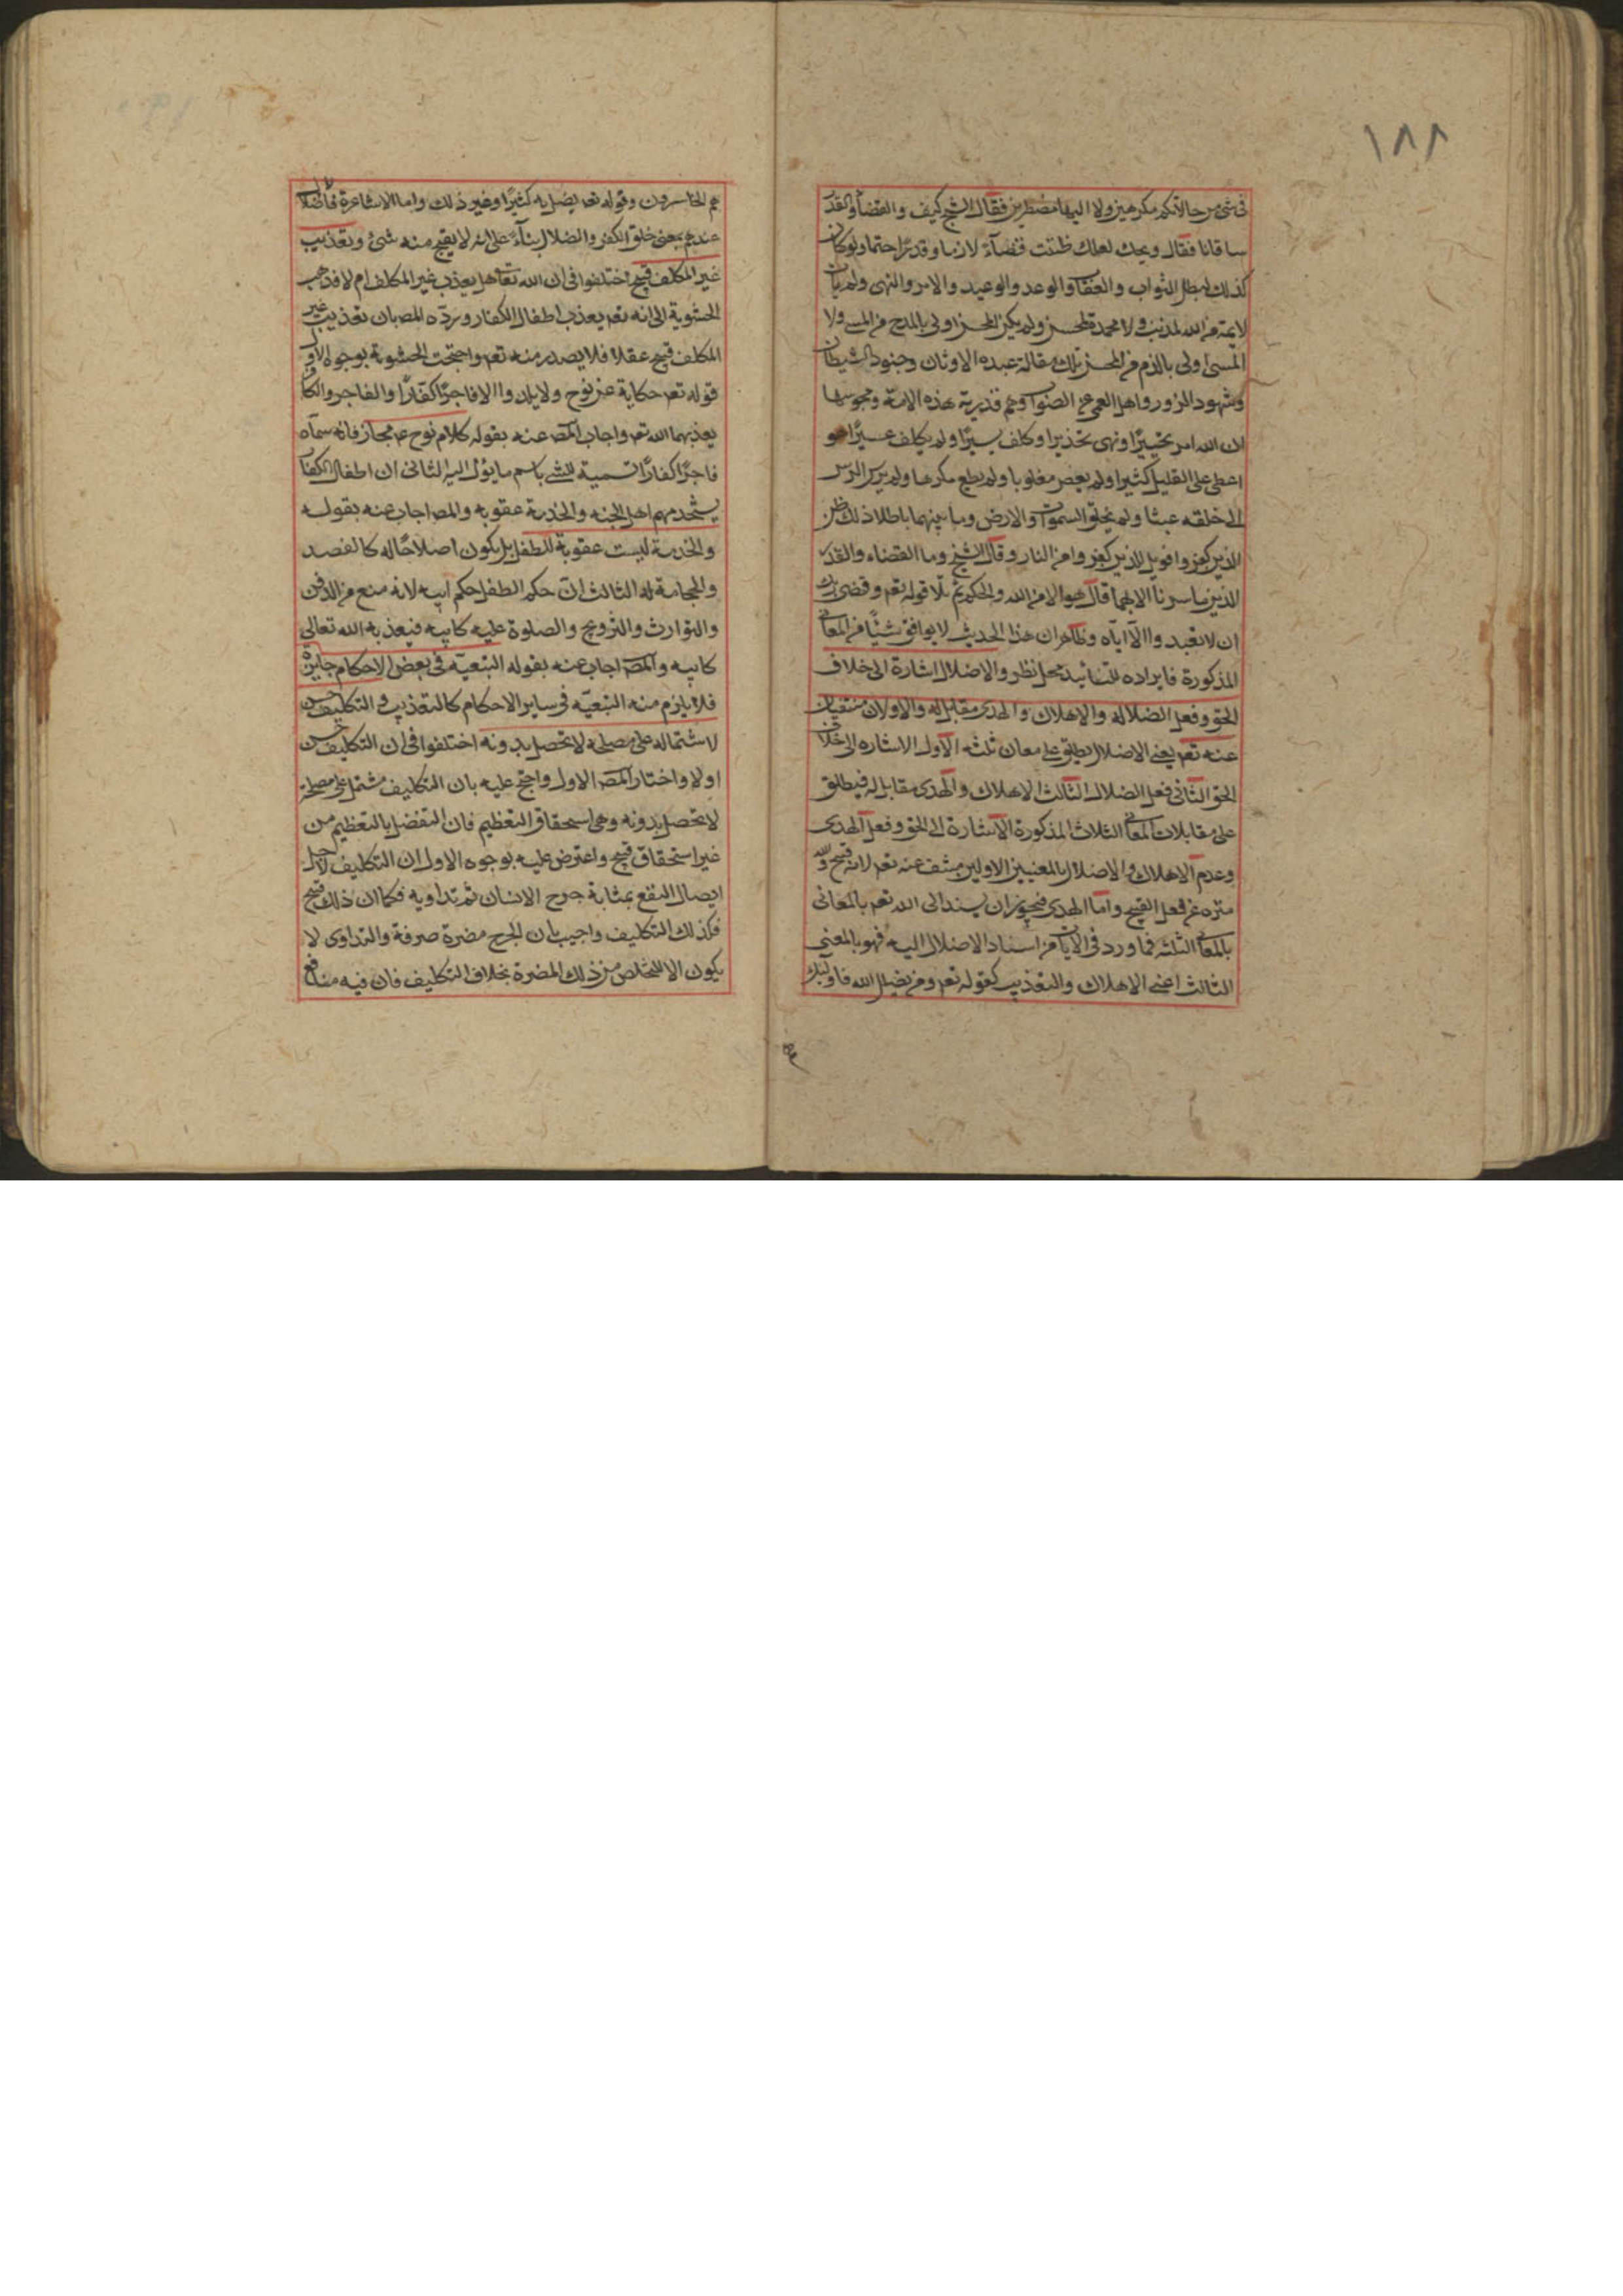 ١٨٨
فى شئ من حالاتكم مكرهين ولا اليها مضطرين فقال الشيخ كيف والقضاء والقدر
ساقانا فقال ويحك لعلك ظننت قضآءً لازما وقدرًا حتما ولو كان
كذلك لبطل الثواب والعقاب والوعد والوعيد والامر والنهى ولم يأت
لايمة من الله لمذنب ولا محمدة لمحسن ولم يكن المحسن اولى بالمدح من المسئ ولا
المسئ اولى بالذم من المحسن تلك مقالة عبدة الاوثان وجنود الشيطان
وشهود الزور واهل العمى عن الصواب وهم قدرية هذه الامة ومجوسها
ان الله امر تخييرًا ونهى تحذيرا وكلف يسيرًا ولم يكلف عسيرًا هو
اعطى على القليل كثيرا ولم يعص مغلوبا ولم يطع مكرها ولم يرسل الرسل
الى خلقه عبثا ولم يخلق السموات والارض وما بينهما باطلا ذلك ظن
الذين كفروا فويل للذين كفروا من النار وقال الشيخ وما القضاء والقدر
الذين ما سرنا الا بهما قال هو الامر من الله والحكم ثم تلا قوله تعم وقضى ربك
ان لا تعبدوا الّا ايّاه وظاهر ان هذا الحديث لا يوافق شيئًا من المعانى
المذكورة فايراده للتأييد محل نظر والاضلال اشارة الى خلاف
الحق وفعل الضلاله والاهلاك والهدى مقابل له والاولان منتفيان
عنه تعم يعنى الاضلال يطلق على معان ثلثة الاول الاشاره الى خلاف
الحق الثانى فعل الضلال الثالث الاهلاك والهدى مقابل له فيطلق
على مقابلات المعانى الثلاث المذكورة الاشارة الى الحق وفعل الهدى
وعدم الاهلاك والاضلال بالمعنيين الاولين منتف عنه تعم لانه قبيح والله
منزه عن فعل القبيح واما الهدى فيجوز ان يسند الى الله تعم بالمعانى
بالمعانى الثلثة فما ورد فى الايات من اسناد الاضلال اليه فهو بالمعنى
الثالث اعنى الاهلاك والتعذيب كقوله تعم ومن يضلل الله فاولئك
هم الخاسرون وقوله تعم يضل به كثيرًا وغير ذلك واما الاشاعرة فالاضلال
عندهم بمعنى خلق الكفر والضلال بنآءً على انه لا يقبح منه شئ وتعذيب
غير المكلف قبيح اختلفوا فى ان الله تعالى هل يعذب غير المكلف ام لا فذهب
الحشوية الى انه تعم يعذب اطفال الكفار وردّه المص بان تعذيب غير
المكلف قبيح عقلا فلا يصدر منه تعم واحتجت الحشوية بوجوه الاول
قوله تعم حكاية عن نوح ولا يلدوا الا فاجرًا كفّارًا والفاجر والكافر
يعذبهما الله تعم واجاب المص عنه بقوله كلام نوح عم مجاز فانه سمّاه
فاجرًا كفارًا تسمية للشئ باسم ما يؤل اليه الثانى ان اطفال الكفار
يستخدمهم اهل الجنه والخدمة عقوبه والمص اجاب عنه بقوله
والخدمة ليست عقوبة للطفل بل يكون اصلاحًا له كالفصد
والحجامة له الثالث انّ حكم الطفل حكم ابيه لانه منع من الدفن
والتوارث والتزويج والصلوة عليه كابيه فيعذبه الله تعالى
كابيه والمص اجاب عنه بقوله التبعيّه فى بعض الاحكام جايزة
فلا يلزم منه التبعيّه فى ساير الاحكام كالتعذيب والتكليف حسن
لاشتماله على مصلحة لا تحصل بدونه اختلفوا فى ان التكليف حسن
اولا واختار المص الاول واحتج عليه بان التكليف مشتمل على مصلحة
لا تحصل بدونه وهى استحقاق التعظيم فان التفضل بالتعظيم من
غير استحقاق قبيح واعترض عليه بوجوه الاول ان التكليف لاجل
ايصال النفع بمثابة جرح الانسان ثم تداويه فكما ان ذلك قبيح
فكذلك التكليف واجيب بان الجرح مضرة صرفة والتداوى لا
يكون الا للتخلص من ذلك المضرة بخلاف التكليف فان فيه منافع